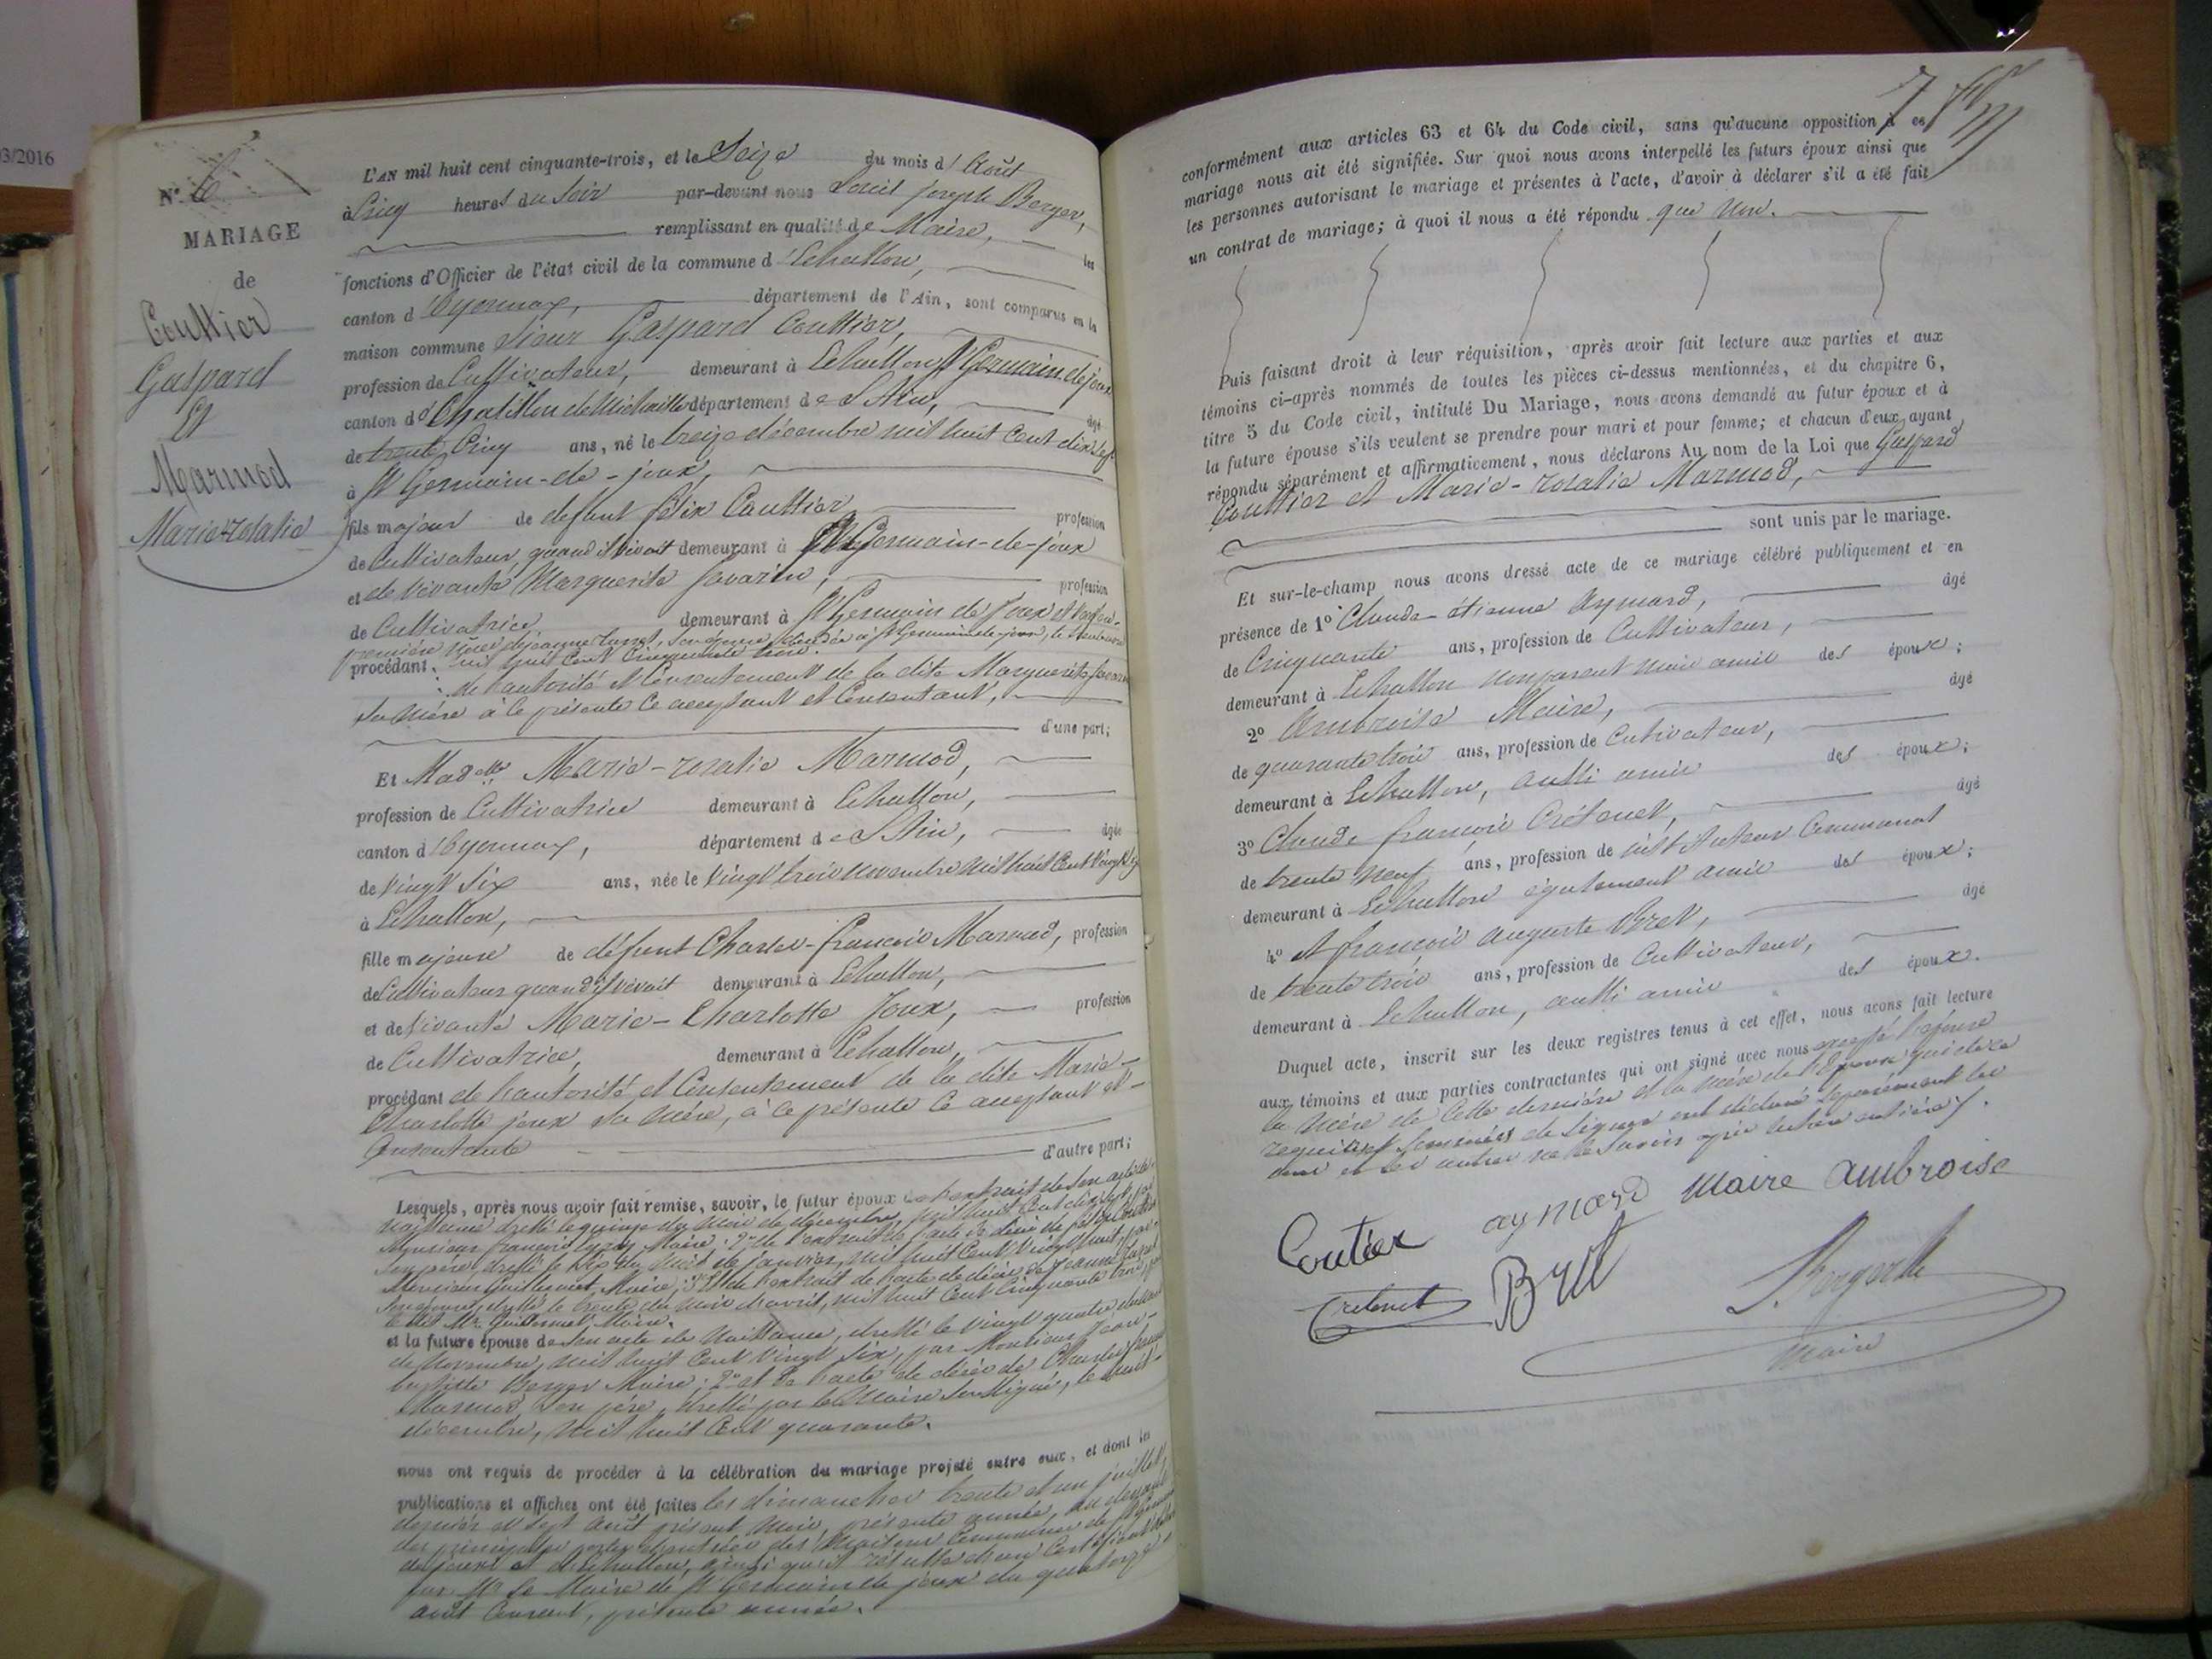 03/2016
N.º 6
MARIAGE
de
Couttier
Gaspard
Et
Marmod
Marie-rosalie
L'AN mil huit cent cinquante-trois, et le Seize du mois d'Août
à Cinq heures du Soir par-devant nous Louis Joseph Berger,
remplissant en qualité de Maire, les
fonctions d'Officier de l'état civil de la commune d'Echallon,
canton d'Oyonnax, département de l'Ain, sont comparus en la
maison commune Sieur Gaspard Couttier,
profession de Cultivateur, demeurant à St Germain-de-joux
canton de Chatillon de Michaille département de L'Ain, âgé
de trente Cinq ans, né le treize décembre mil huit Cent dix sept
à St Germain-de-joux,
fils majeur de defunt félix Couttier profession
de Cultivateur, quand il vivait demeurant à St Germain-de-joux
et de vivante Marguerite Savarin, profession
de Cultivatrice demeurant à St Germain de Joux
première décédée à St Germain de joux, le
procédant mil huit Cent Cinquante trois.
de l'autorité et Consentement de la dite Marguerite Savarin
sa Mère à ce présente ce acceptant et Consentant,
d'une part;
Et Madelle Marie-rosalie Marmod,
profession de Cultivatrice demeurant à Echallon,
canton d'Oyonnax, département de L'Ain, âgée
de vingt Six ans, née le vingt trois novembre mil huit Cent vingt Six
à Echallon,
fille majeure de défunt Charles-françois Marmod, profession
de Cultivateur quand il vivait demeurant à Echallon,
et de vivante Marie-Charlotte Joux, profession
de Cultivatrice, demeurant à Echallon,
procédant de l'autorité et Consentement de la dite Marie-
Charlotte joux sa Mère, à ce présente ce acceptant et
Consentante d'autre part;
Lesquels, après nous avoir fait remise, savoir, le futur époux de l'extrait de son acte de
naissance dressé le quinze du mois de décembre, mil huit Cent dix sept, par
Monsieur françois Maire; 2º de l'extrait de l'acte de décès de félix Couttier
Son père dressé le six du mois de janvier, mil huit Cent vingt huit, par
Monsieur Guillermet, Maire; 3º Et de l'extrait de l'acte de décès de Jeanne
dressé le trente du mois d'avril, mil huit Cent Cinquante trois par
le dit Mr. Guillermet, Maire.
et la future épouse de Son acte de Naissance, dressé le vingt quatre du mois
de Novembre, mil huit Cent vingt Six, par Monsieur Jean-
baptiste Berger Maire; 2º et de l'acte de décès de Charles françois
Marmod Son père, dressé par le Maire Soussigné, le huit
décembre, mil huit Cent quarante.
nous ont requis de procéder à la célébration du mariage projeté entre eux, et dont les
publications et affiches ont été faites les dimanches trente et un juillet,
dernier et sept Août présent mois, présente année, au devant
des principales portes d'entrée des Maisons Communes de St Germain
de joux et d'Echallon, ainsi qu'il résulte d'un Certificat délivré
par Mr Le Maire de St Germain de joux du quatorze
août Courant, présente année.
conformément aux articles 63 et 64 du Code civil, sans qu'aucune opposition à ce
mariage nous ait été signifiée. Sur quoi nous avons interpellé les futurs époux ainsi que
les personnes autorisant le mariage et présentes à l'acte, d'avoir à déclarer s'il a été fait
un contrat de mariage; à quoi il nous a été répondu que Non.
Puis faisant droit à leur réquisition, après avoir fait lecture aux parties et aux
témoins ci-après nommés de toutes les pièces ci-dessus mentionnées, et du chapitre 6,
titre 5 du Code civil, intitulé Du Mariage, nous avons demandé au futur époux et à
la future épouse s'ils veulent se prendre pour mari et pour femme; et chacun d'eux ayant
répondu séparément et affirmativement, nous déclarons Au nom de la Loi que Gaspard
Couttier et Marie-rosalie Marmod,
sont unis par le mariage.
Et sur-le-champ nous avons dressé acte de ce mariage célébré publiquement et en
présence de 1º Claude-étienne Aymard, âgé
de Cinquante ans, profession de Cultivateur,
demeurant à Echallon non parent mais amie des époux;
2º Ambroise Maire, âgé
de quarante trois ans, profession de Cultivateur,
demeurant à Echallon, aussi amie des époux;
3º Claude françois Crétenet, âgé
de trente neuf ans, profession de instituteur Communal
demeurant à Echallon également amie des époux;
4º et françois auguste Bret, âgé
de trente trois ans, profession de Cultivateur,
demeurant à Echallon, aussi amie des époux.
Duquel acte, inscrit sur les deux registres tenus à cet effet, nous avons fait lecture
aux témoins et aux parties contractantes qui ont signé avec nous excepté l'épouse
la Mère de cette dernière et la Mère de l'Epoux qui de ce
requises sommées de signer ont déclaré séparément les
unes et les autres ne le Savoir après lecture entière.
Coutier aymard Maire ambroise
Cretenet Bret L. Berger
Maire